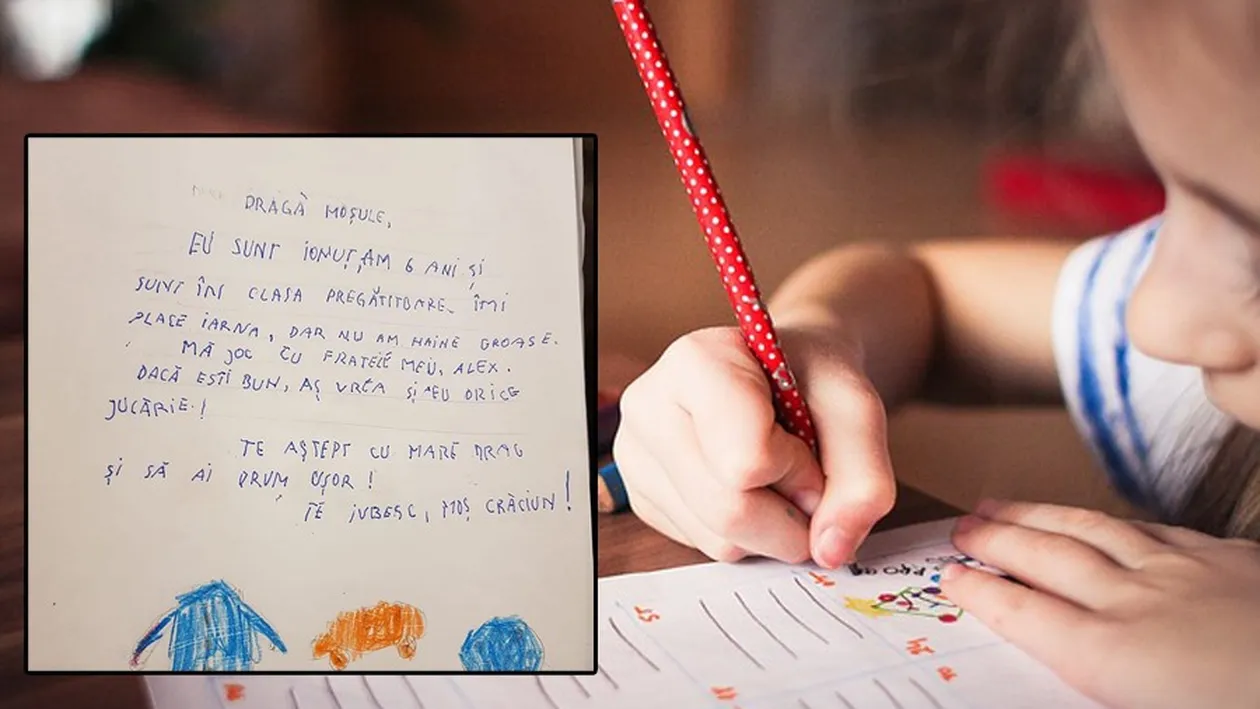 DRAGĂ MOȘULE,
EU SUNT IONUȚ, AM 6 ANI ȘI
SUNT ÎN CLASA PREGĂTITOARE. ÎMI
PLACE IARNA, DAR NU AM HAINE GROASE.
MĂ JOC CU FRATELE MEU, ALEX.
DACĂ EȘTI BUN, AȘ VREA ȘI EU ORICE
JUCĂRIE!
TE AȘTEPT CU MARE DRAG
ȘI SĂ AI DRUM UȘOR!
TE IUBESC, MOȘ CRĂCIUN!